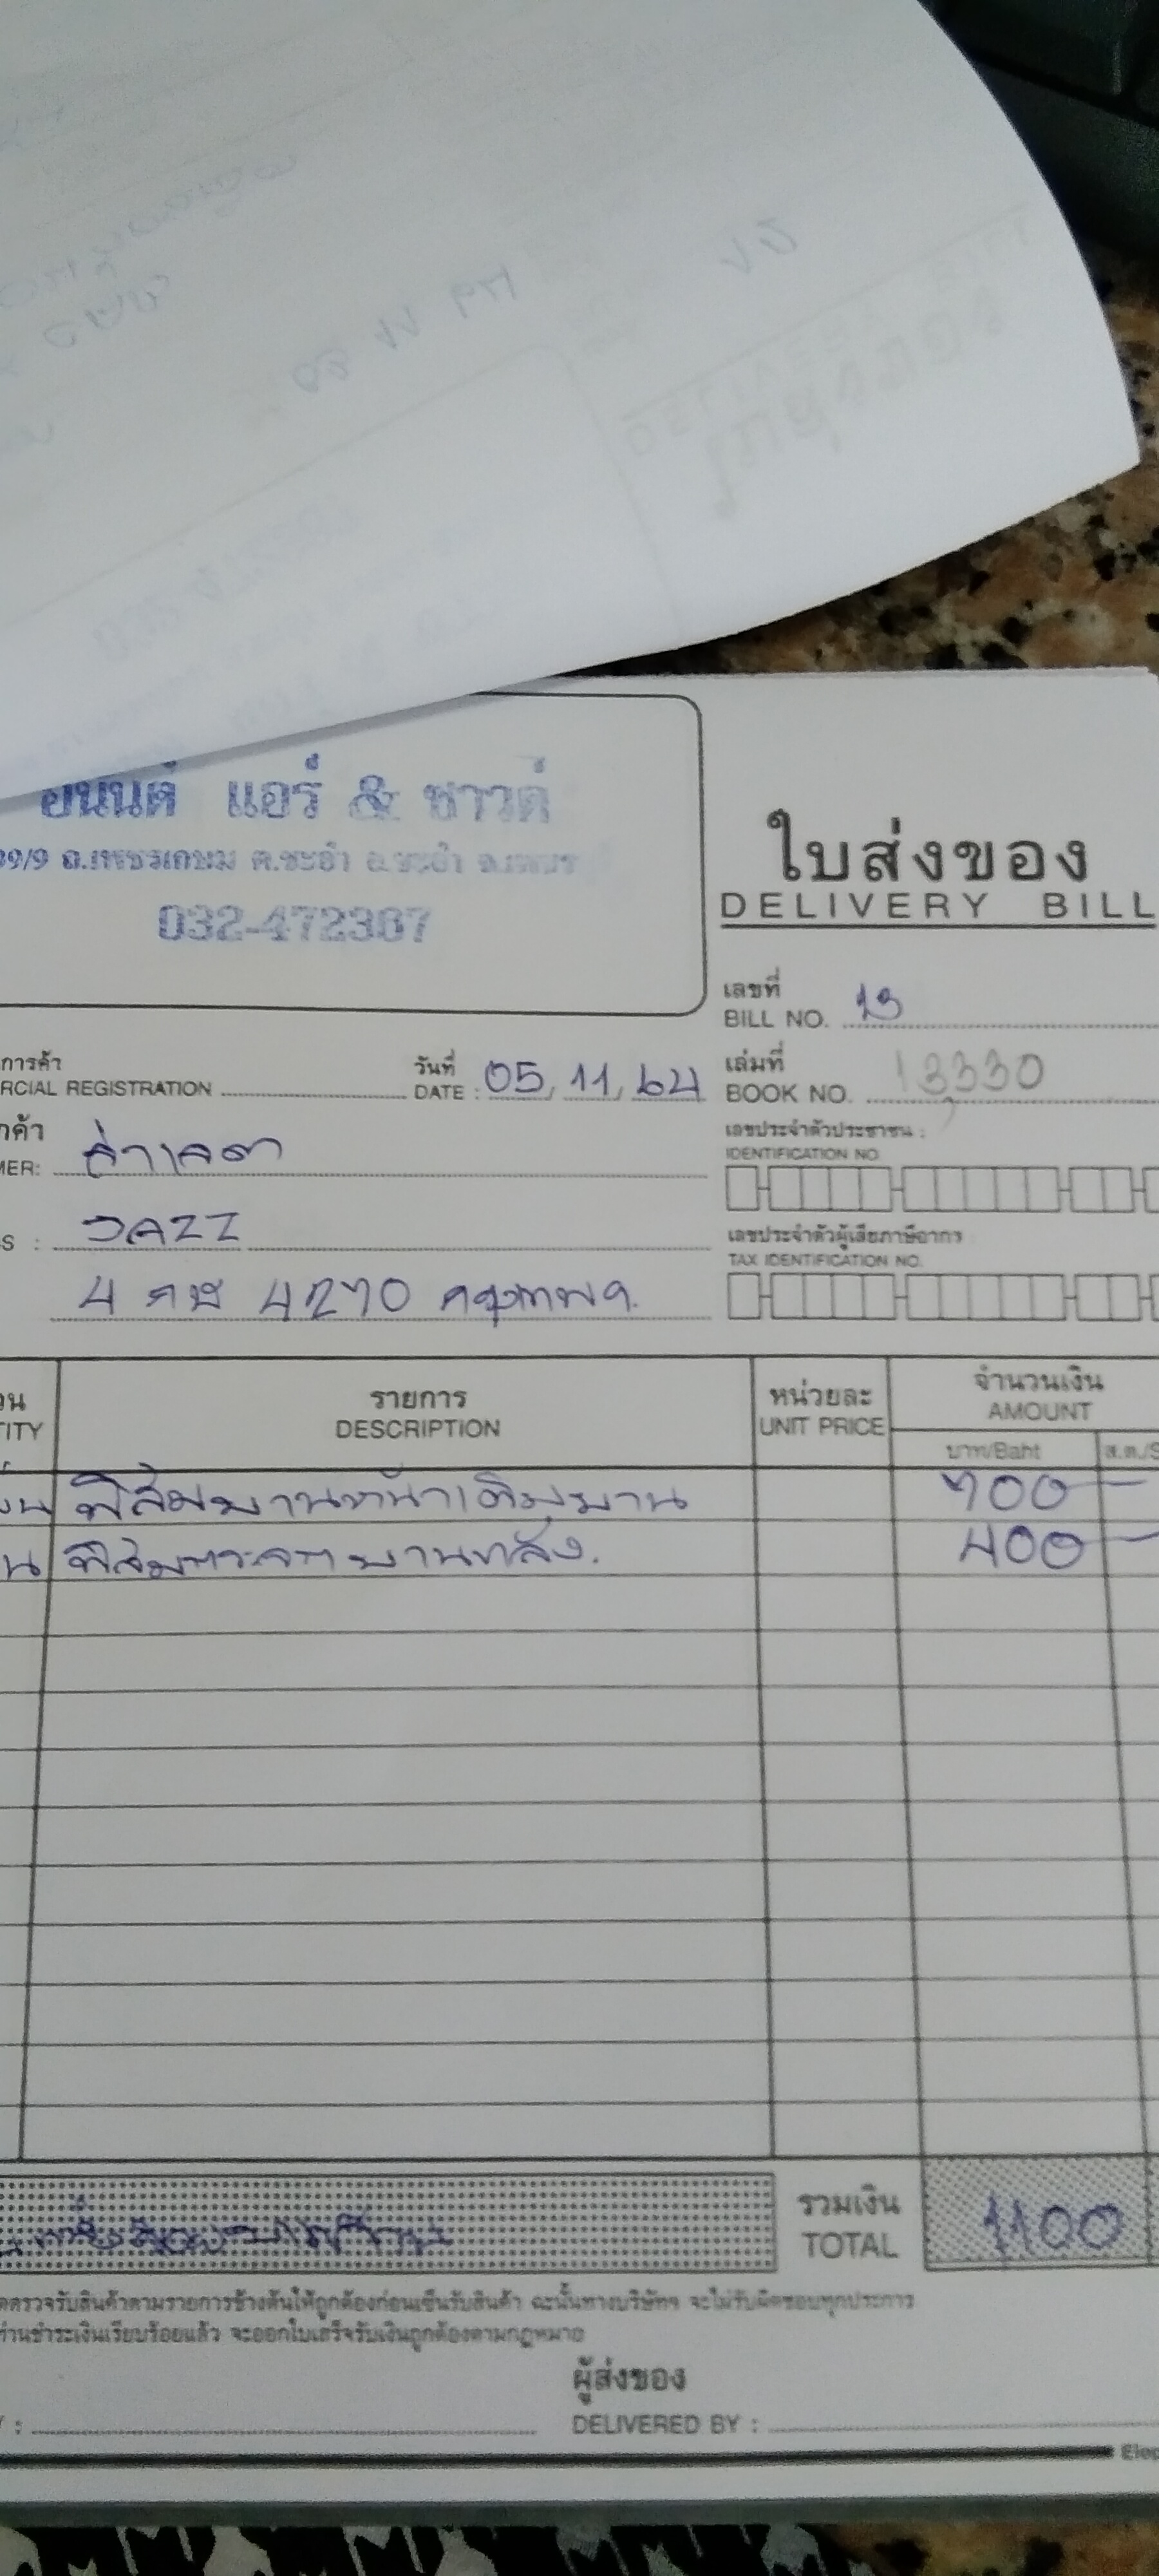 อนนต์ แอร์ & ซาวด์
39/9 ถ.เพชรเกษม ต.ชะอำ อ.ชะอำ จ.เพชร
032-472387
ใบส่งของ
DELIVERY BILL
เลขที่
BILL NO. 13
การค้า
RCIAL REGISTRATION
วันที่
DATE : 05, 11, 64
เล่มที่
BOOK NO. 13330
กค้า
MER:
เลขประจำตัวประชาชน :
IDENTIFICATION NO.
S : JAZZ
เลขประจำตัวผู้เสียภาษีอากร
TAX IDENTIFICATION NO.
4 กษ 4270 กรุงเทพฯ
วน
TITY
รายการ
DESCRIPTION
หน่วยละ
UNIT PRICE
จำนวนเงิน
AMOUNT
บาท/Baht
ส.ต./S
ฟิล์มบานหน้าเต็มบาน 700 -
ฟิล์มกระจกบานหลัง. 400 -
หนึ่งพันหนึ่งร้อยบาทถ้วน
รวมเงิน
TOTAL
1100
ดตรวจรับสินค้าตามรายการข้างต้นให้ถูกต้องก่อนเซ็นรับสินค้า ฉะนั้นทางบริษัทฯ จะไม่รับผิดชอบทุกประการ
ท่านชำระเงินเรียบร้อยแล้ว จะออกใบเสร็จรับเงินถูกต้องตามกฎหมาย
ผู้ส่งของ
DELIVERED BY :